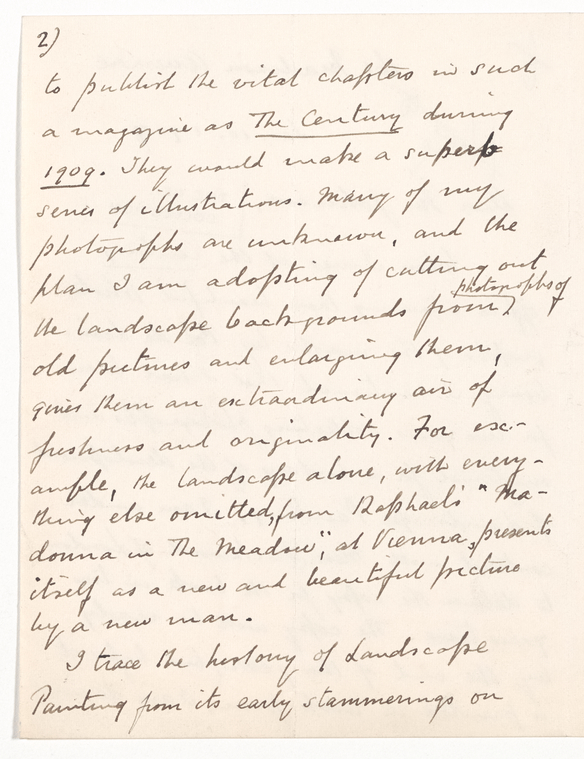 2)
to publish the vital chapters in such
a magazine as The Century during
1909. They would make a superb
series of illustrations. Many of my
photographs are unknown, and the
plan I am adopting of cutting out
photographs of
the landscape backgrounds from
old pictures and enlarging them,
gives them an extraordinary air of
freshness and originality. For ex-
ample, the landscape alone, with every-
thing else omitted, from Raphael's "Ma-
donna in The Meadow", at Vienna, presents
itself as a new and beautiful picture
by a new man.
I trace the history of Landscape
Painting from its early stammerings on